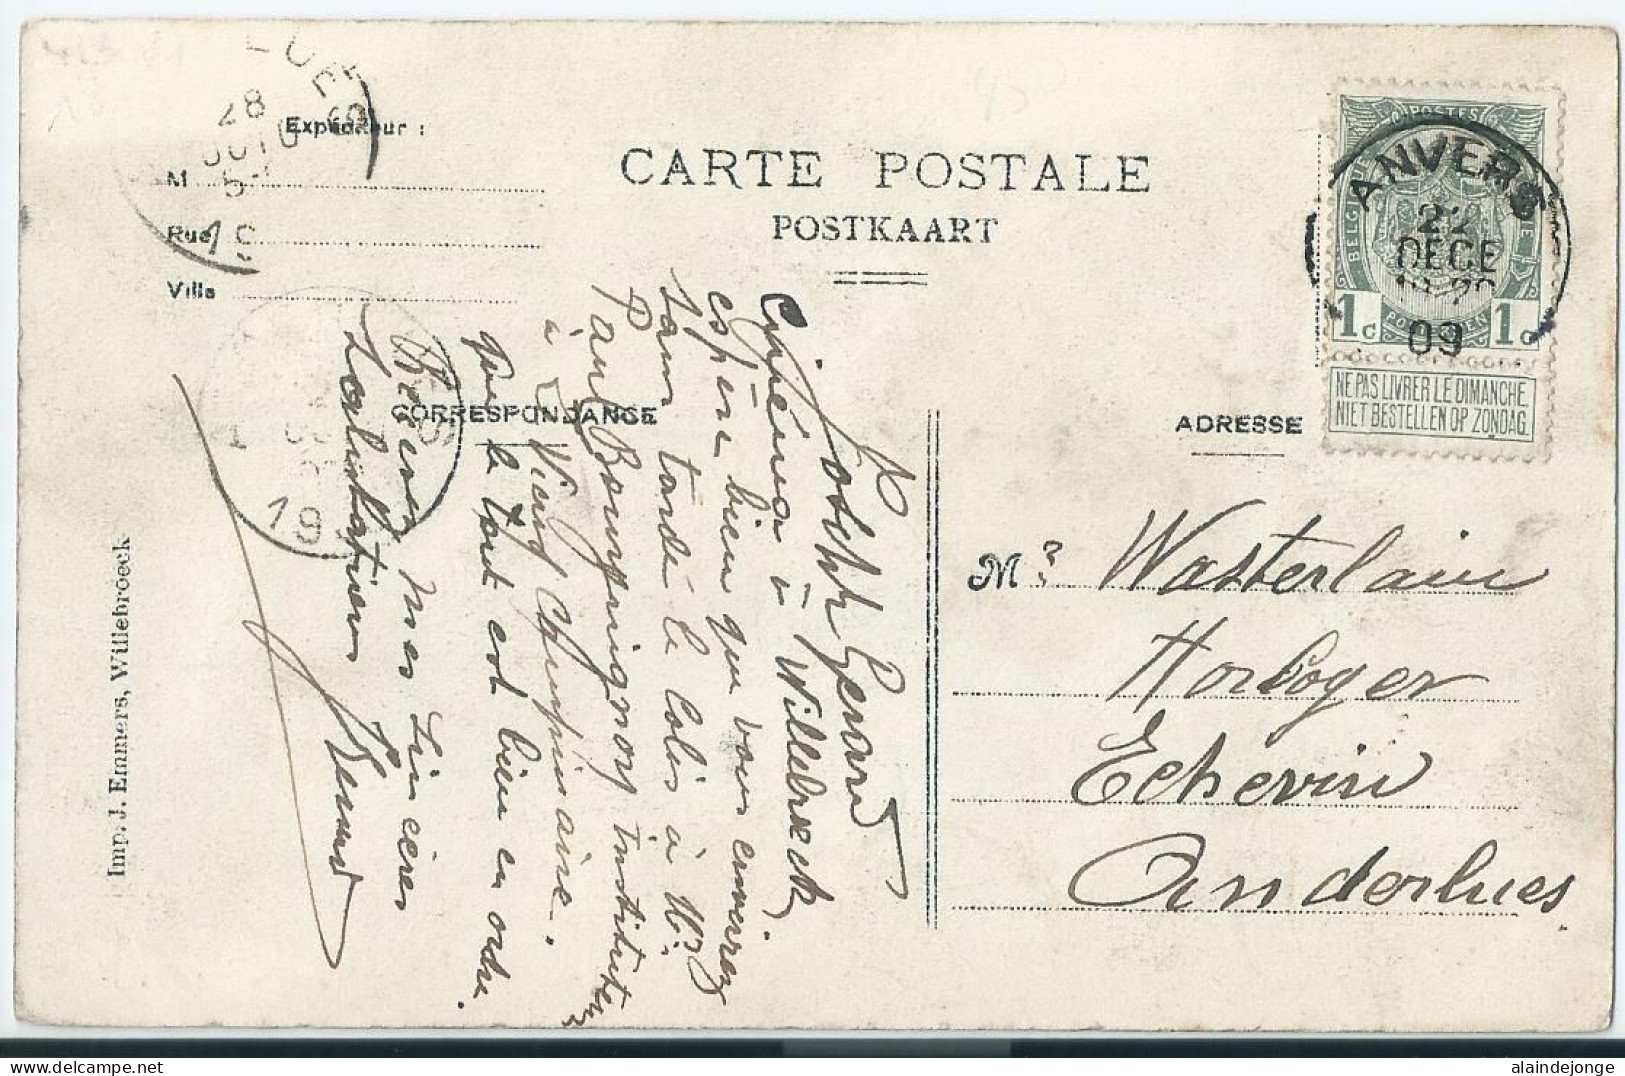 CARTE POSTALE
POSTKAART
Expéditeur :
M
Rue
Ville
CORRESPONDANCE
ADRESSE
POSTES
BELGIQUE
1c 1c
NE PAS LIVRER LE DIMANCHE.
NIET BESTELLEN OP ZONDAG.
ANVERS
22
DECE
09
28
19
19
Mr Wasterlain
Horloger
Echevin
Anderlues
Gérard
à Willebroeck,
espère bien que vous enverrez
sans tarder le colis à Mr.
Paul Bourguignon, instituteur
à Vieux Campinaire.
que le tout est bien en ordre.
Recevez mes sincères
Salutations
Imp. J. J. Emmers, Willebroeck
alaindejonge